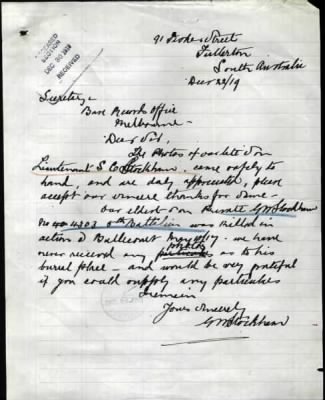 RECORDS
SECTION
DEC 30 1919
RECEIVED
Street
Fullarton
South Australia
Decr 28/19
Secretary
Base Records Office
Melbourne
Dear Sir,
The Photos of our late Son
Lieutenant S. C. Stockham. came safely to
hand, and are duly appreciated, please
accept our sincere thanks for same -
our eldest Son Private G W Stockham
No 4303 Battalion was killed in
action at Bullecourt May 17 - we have
never received any particulars as to his
burial place - and would be very grateful
if you could supply any particulars
I remain
Yours Sincerely
G W Stockham